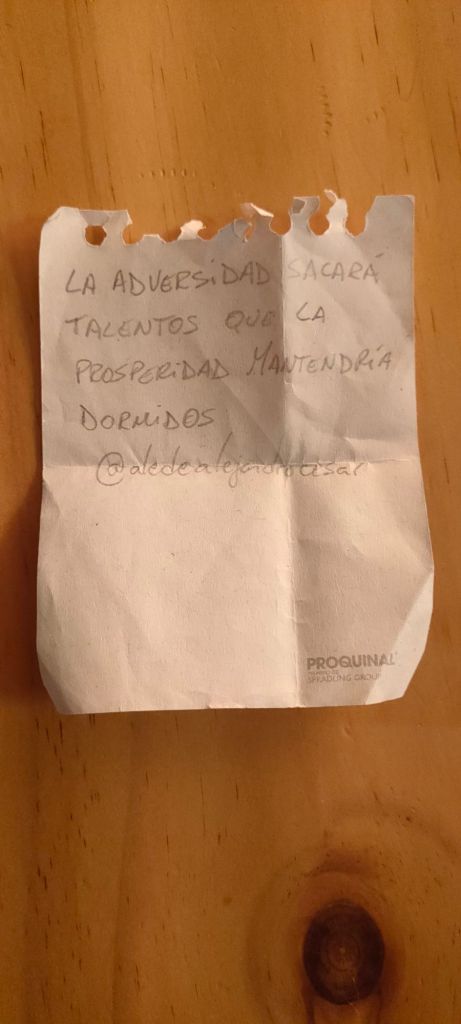 LA ADVERSIDAD SACARÁ
TALENTOS QUE LA
PROSPERIDAD MANTENDRÍA
DORMIDOS
@aledealejandrocesar
PROQUINAL
SPRADLING GROUP